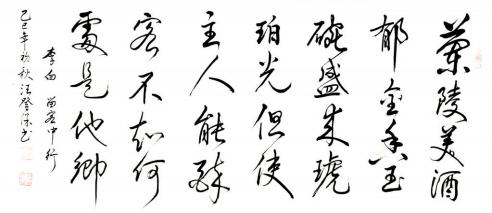 蘭陵美酒
郁金香玉
碗盛来琥
珀光但使
主人能醉
客不知何
處是他鄉
李白 客中行
己巳年初秋汪登书